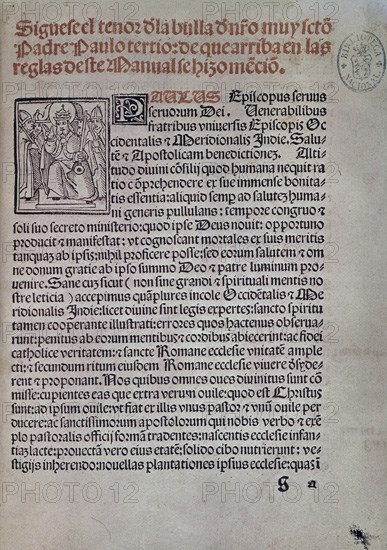 Siguese el tenor đla bulla đ nr̃o muy scto̅
Padre Paulo tertio: de que arriba en las
reglas deste Manual se hizo me̅cio̅.
PAULUS Episcopus seruus
seruorum Dei. Venerabilibus
fratribus vniuersis Episcopis Oc
cidentalis & Meridionalis Indie. Salu-
te̅ & Apostolicam benedictione̅. Alti-
tudo diuini co̅silij quod humana nequit ra
tio co̅prehendere ex sue immense bonita-
tis essentia: aliquid semp ad salutez huma
ni generis pullulans: tempore congruo &
soli suo secreto ministerio: quod ipse Deus nouit: opportuno
producit & manifestat: vt cognoscant mortales ex suis meritis
tanquaz ab ipsis: nihil proficere posse: sed eorum salutem & om
ne donum gratie ab ipso summo Deo & patre luminum pro-
uenire. Sane cuz sicut (non sine grandi & spirituali mentis no
stre leticia) accepimus qua̅plures incole Occide̅talis & Me
ridionalis Indie: licet diuine sint legis expertes: sancto spiritu
tamen cooperante illustrati: errores quos hactenus obserua-
runt: penitus ab eorum mentibuz & cordibus abiecerint: ac fidei
catholice veritatem: & sancte Romane ecclesie vnitate̅ ample
cti: & secundum ritum eiusdem Romane ecclesie viuere đsyde-
rent & proponant. Nos quibus omnes oues diuinitus sunt co̅
misse: cupientes eas que extra verum ouile: quod est Christus
sunt: ad ipsum ouile: vt fiat ex illis vnus pastor & vnu̅ ouile per
ducere: ac sanctissimorum apostolorum qui nobis verbo & exe̅-
plo pastoralis officij formam tradentes: nascentis ecclesie infan-
tia̅z lacte: prouecta̅ vero eius etate̅: solido cibo nutrierunt: ve-
stigijs inherendo: nouellas plantationes ipsius ecclesie: quas i̅
S a
PHOTO 12